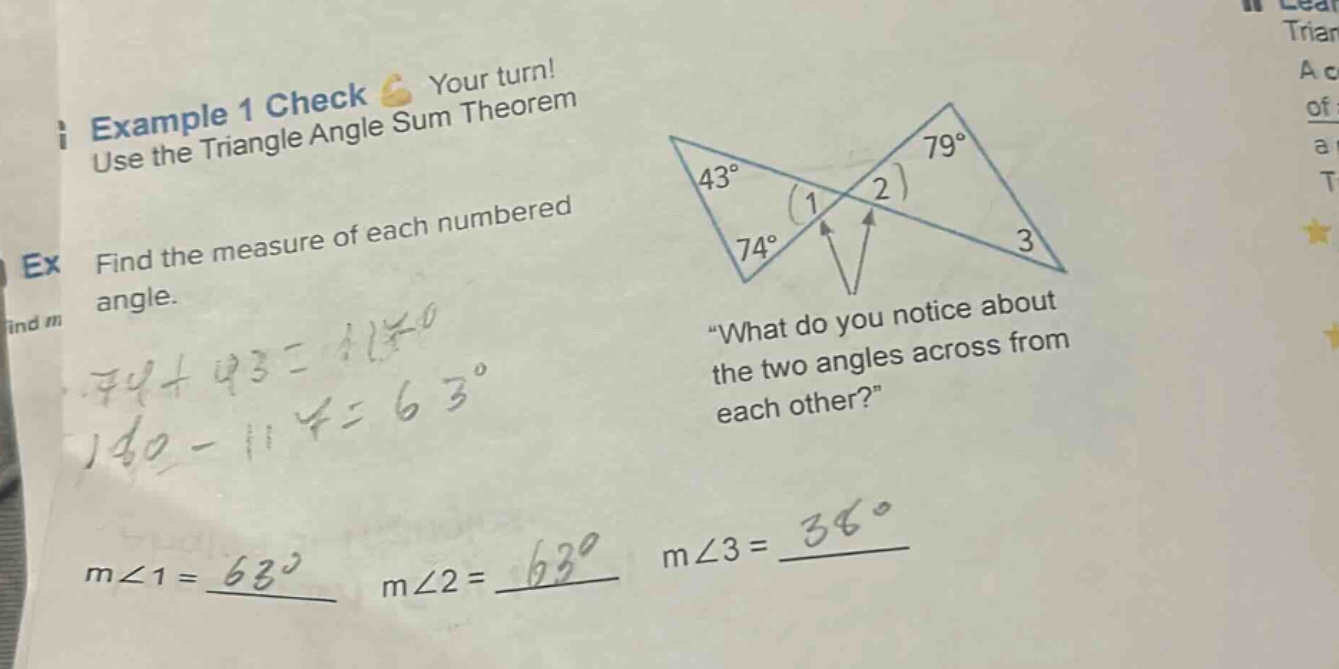 Example 1 Check 💪 Your turn!
Use the Triangle Angle Sum Theorem
Ex Find the measure of each numbered
angle.
ind m
74 + 43 = 117°
180 - 117 = 63°
43°
74°
1
2
79°
3
"What do you notice about
the two angles across from
each other?"
m∠1 = 63°
m∠2 = 63°
m∠3 = 38°
Trian
A c
of
a
T